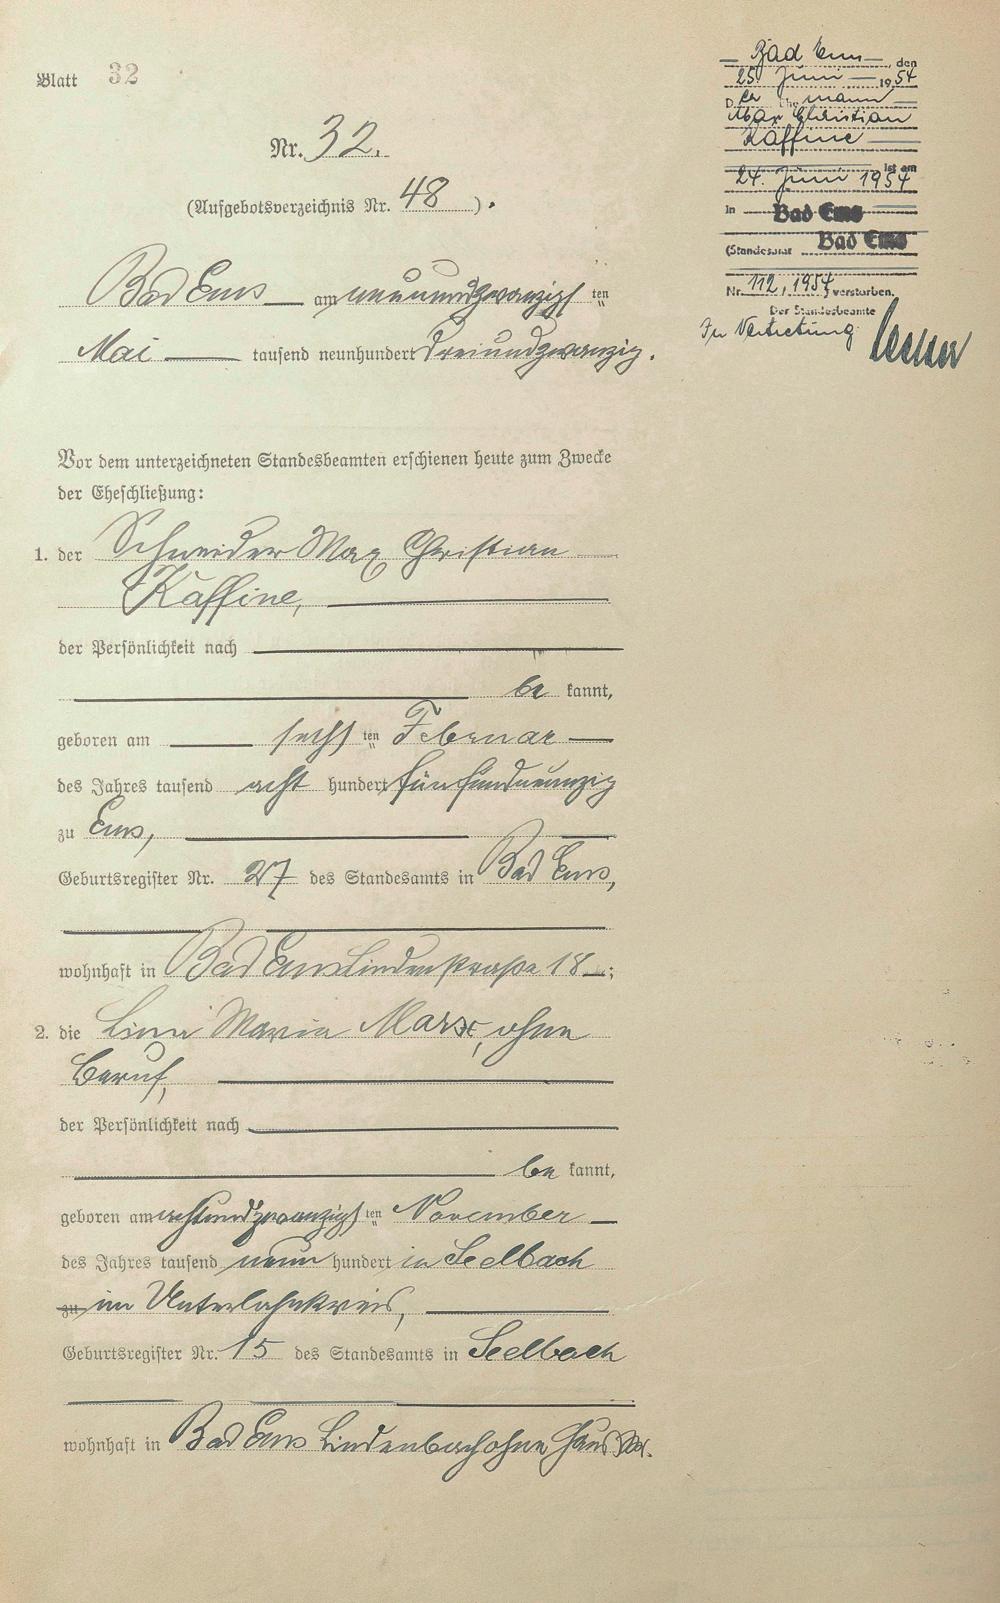 Blatt 32
Nr. 32.
(Aufgebotsverzeichnis Nr. 48).
Bad Ems am neunundzwanzigsten
Mai tausend neunhundert dreiundzwanzig.
Vor dem unterzeichneten Standesbeamten erschienen heute zum Zwecke
der Eheschließung:
1. der Schneider Max Christian
Kaffine,
der Persönlichkeit nach
be kannt,
geboren am sechsten Februar
des Jahres tausend acht hundert fünfundneunzig
zu Ems,
Geburtsregister Nr. 27 des Standesamts in Bad Ems,
wohnhaft in Bad Ems Lindenstraße 18;
2. die Lina Maria Marx, ohne
Beruf,
der Persönlichkeit nach
be kannt,
geboren am achtundzwanzigsten November
des Jahres tausend neun hundert in Seelbach
zu im Unterlahnkreis,
Geburtsregister Nr. 15 des Standesamts in Seelbach
wohnhaft in Bad Ems Lindenbach ohne Haus Nr.
Bad Ems, den
25. Juni 1954
Der Ehemann
Max Christian
Kaffine
ist am
24. Juni 1954
in Bad Ems
(Standesamt Bad Ems
Nr. 112, 1954) verstorben.
Der Standesbeamte
In Vertretung